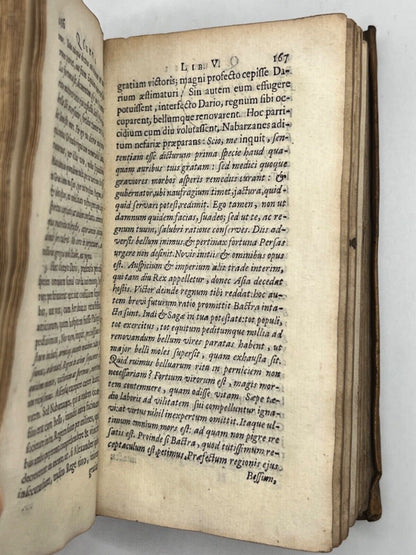 LIB. V. 167
gratiam victoris; magni profecto cepisse Da-
rium æstimaturi. Sin autem eum effugere
potuissent, interfecto Dario, regnum sibi oc-
cuparent, bellumque renovarent. Hoc parri-
cidium cum diu volutassent, Nabarzanes adi-
tum nefariæ præparans: Scio, me inquit, sen-
tentiam esse dicturum prima specie haud qua-
quam auribus tuis gratam: sed medici quoque
graviores morbos asperis remediis curant: &
gubernator, ubi naufragium timet, jactura, quid-
quid servari potest, redimit. Ego tamen, non ut
damnum quidem facias, suadeo; sed ut te, ac re-
gnum tuum, salubri ratione conserves. Diis ad-
versis bellum inimus & pertinax fortuna Persas
urgere non desinit. Novis initiis & omnibus opus
est. Auspicium & imperium alii trade interim,
qui tam diu Rex appelletur, donec Asia decedat
hostis. Victor deinde regnum tibi reddat: hoc au-
tem brevi futurum ratio promittit Bactra inta-
cta sunt. Indi & Sagæ in tua potestate: tot populi,
tot exercitus, tot equitum peditumque millia ad
renovandum bellum vires paratas habent, ut
major belli moles supersit, quam exhausta sit.
Quid ruimus belluarum ritu in perniciem non
necessariam? Fortium virorum est, magis mor-
tem contemnere, quam odisse vitam. Sæpe tæ-
dio laboris ad vilitatem sui compelluntur igna-
vi: at virtus nihil inexpertum omittit. Itaque ul-
timum omnium mors est: ad quam non pigre ire
satis est. Proinde si Bactra, quod tutissimum re-
ceptaculum est, petimus, Præfectum regionis ejus
Bessum,